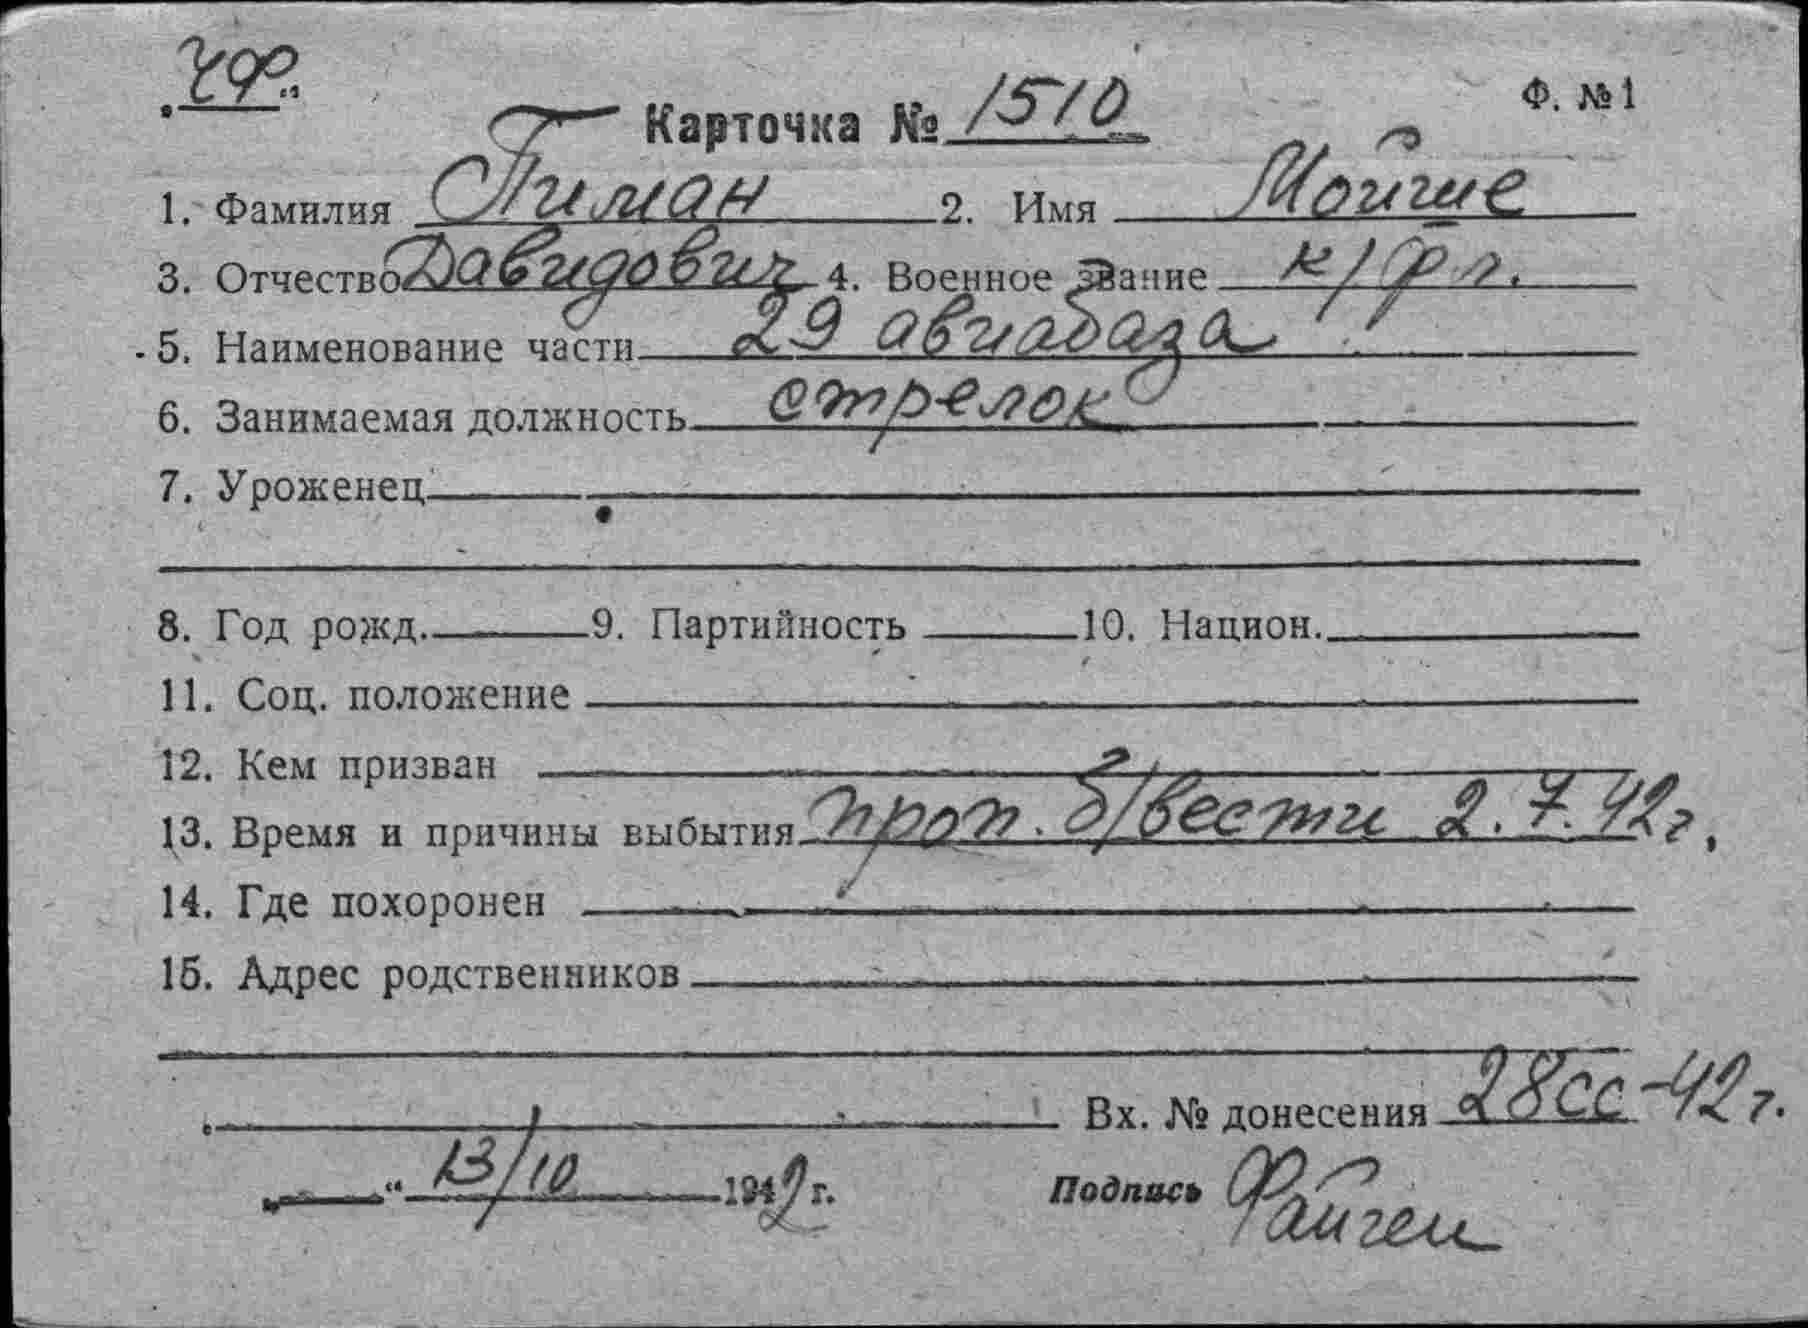 „ЧФ“
Ф. №1
Карточка № 1510
1. Фамилия Гиман 2. Имя Мойше
3. Отчество Давидович 4. Военное звание к/фл.
5. Наименование части 29 авиабаза
6. Занимаемая должность стрелок
7. Уроженец
8. Год рожд. 9. Партийность 10. Национ.
11. Соц. положение
12. Кем призван
13. Время и причины выбытия проп. б/вести 2.7.42г.
14. Где похоронен
15. Адрес родственников
Вх. № донесения 28сс-42г.
„ “ 13/10 1942 г. Подпись